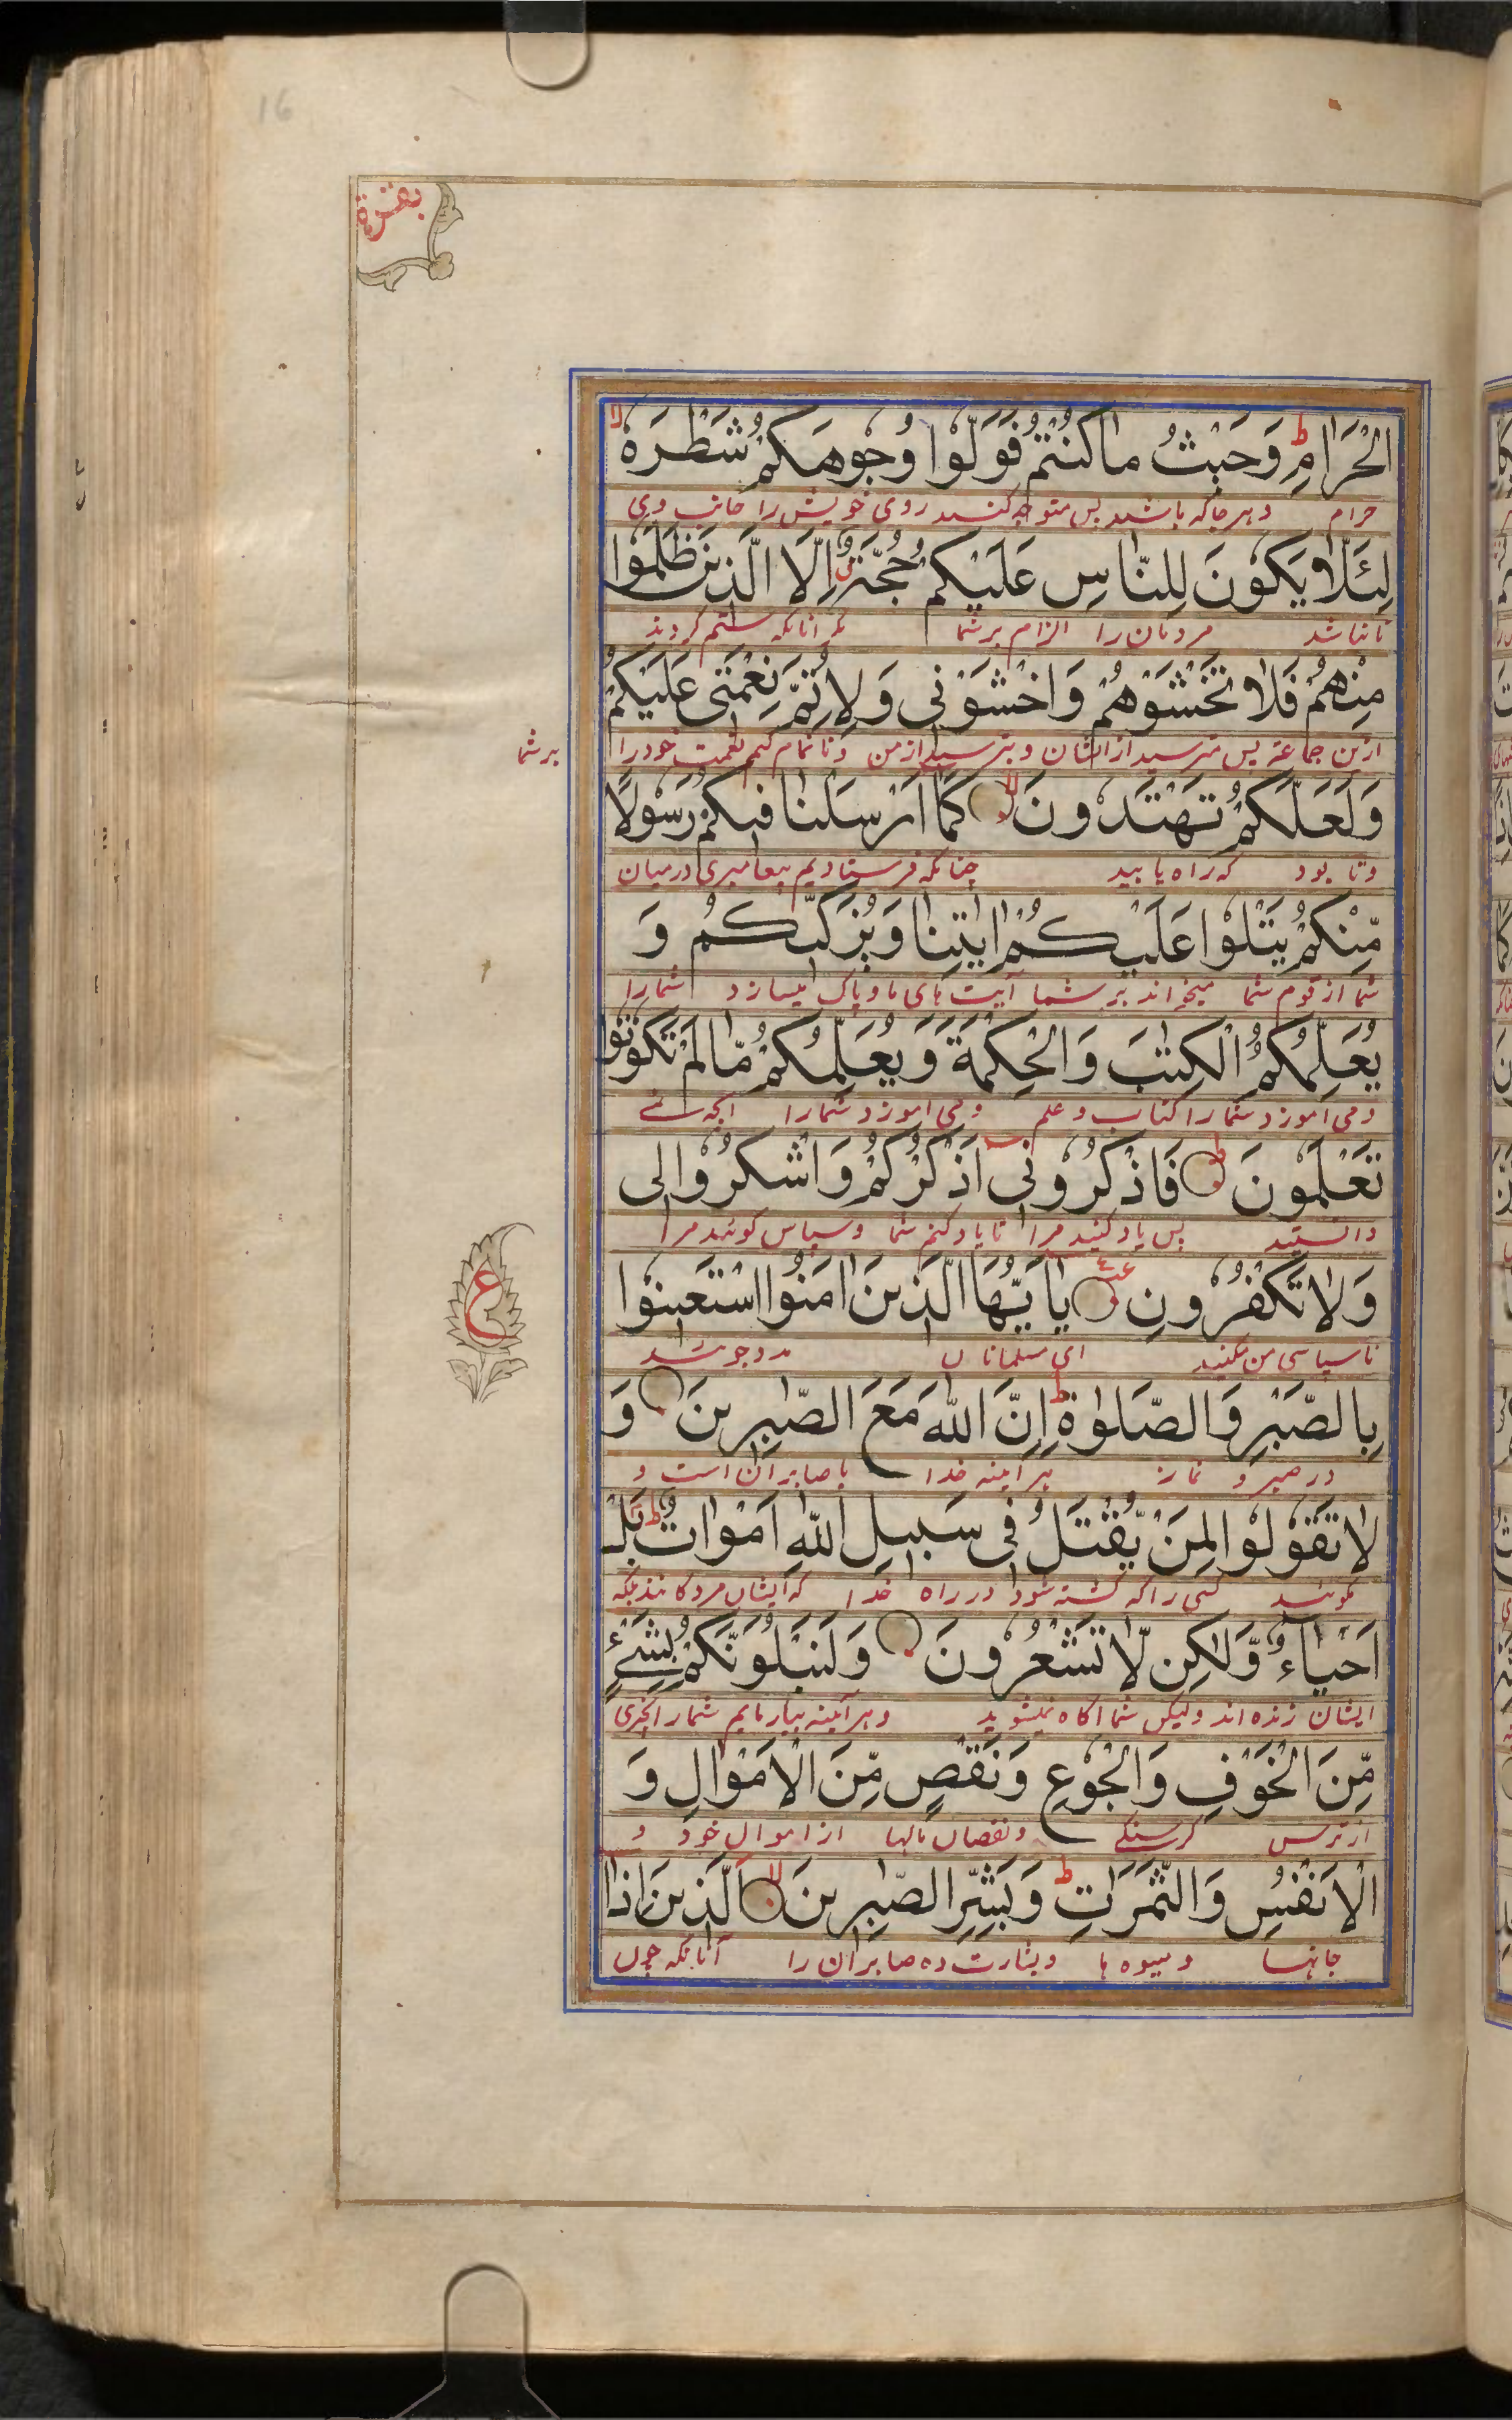 16
بقرة
الْحَرَامِ ط وَحَيْثُ مَا كُنْتُمْ فَوَلُّوا وُجُوهَكُمْ شَطْرَهٗ لا
حرام وهر جا که باشید پس متوجه کنید روی خویش را جانب وی
لِئَلَّا يَكُونَ لِلنَّاسِ عَلَيْكُمْ حُجَّةٌ اِلَّا الَّذِينَ ظَلَمُوا
تا نباشد مردمان را الزام بر شما مگر آنانکه ستم کردند
مِنْهُمْ فَلَا تَخْشَوْهُمْ وَاخْشَوْنِي وَلِاُتِمَّ نِعْمَتِي عَلَيْكُمْ
ازین جماعة پس مترسید از ایشان و بترسید از من و تا تمام کنم نعمت خود را بر شما
وَلَعَلَّكُمْ تَهْتَدُونَ لا كَمَا اَرْسَلْنَا فِيكُمْ رَسُولًا
و تا بود که راه یابید چنانکه فرستادیم پیغامبری درمیان
مِّنْكُمْ يَتْلُوْا عَلَيْكُمْ اٰيٰتِنَا وَيُزَكِّيكُمْ وَ
شما از قوم شما میخواند بر شما آیت های ما و پاک میسازد شما را
يُعَلِّمُكُمُ الْكِتٰبَ وَالْحِكْمَةَ وَيُعَلِّمُكُمْ مَّا لَمْ تَكُوْنُوا
و می آموزد شما را کتاب و علم و می آموزد شما را انچه نمی
تَعْلَمُونَ ط فَاذْكُرُوْنِي اَذْكُرْكُمْ وَاشْكُرُوا لِي
دانستید پس یاد کنید مرا تا یاد کنم شما و سپاس گوئید مرا
وَلَا تَكْفُرُونِ ع يٰاَيُّهَا الَّذِينَ اٰمَنُوا اسْتَعِينُوا
ناسپاسی من مکنید ای مسلمانان مدد جوئید
ع
بِالصَّبْرِ وَالصَّلٰوةِ ط اِنَّ اللّٰهَ مَعَ الصّٰبِرِينَ وَ
در صبر و نماز هر آیینه خدا با صابران است و
لَا تَقُوْلُوا لِمَنْ يُّقْتَلُ فِي سَبِيلِ اللّٰهِ اَمْوَاتٌ ط بَلْ
مگوئید کسی را که کشته شود در راه خدا که ایشان مردگانند بلکه
اَحْيَاءٌ وَّلٰكِن لَّا تَشْعُرُونَ وَلَنَبْلُوَنَّكُمْ بِشَيْءٍ
ایشان زنده اند ولیکن شما آگاه نمیشوید و هر آئینه بیازمایم شما را بچیزی
مِّنَ الْخَوْفِ وَالْجُوْعِ وَنَقْصٍ مِّنَ الْاَمْوَالِ وَ
از ترس گرسنگی و نقصان مالها از اموال خود و
الْاَنْفُسِ وَالثَّمَرَاتِ ط وَبَشِّرِ الصّٰبِرِينَ لا الَّذِينَ اِذَا
جانها و میوه ها و بشارت ده صابران را آنانکه چون